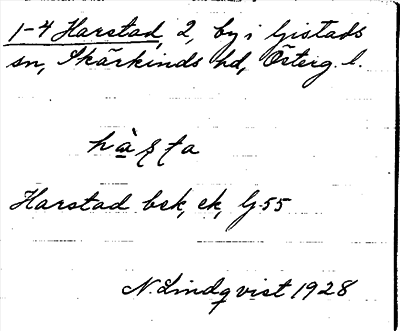 1-4 Harstad, 2, by i Gistads
sn, Skärkinds hd, Österg. l.
hàṣta
Harstad bsk, ek, G 55
N. Lindqvist 1928